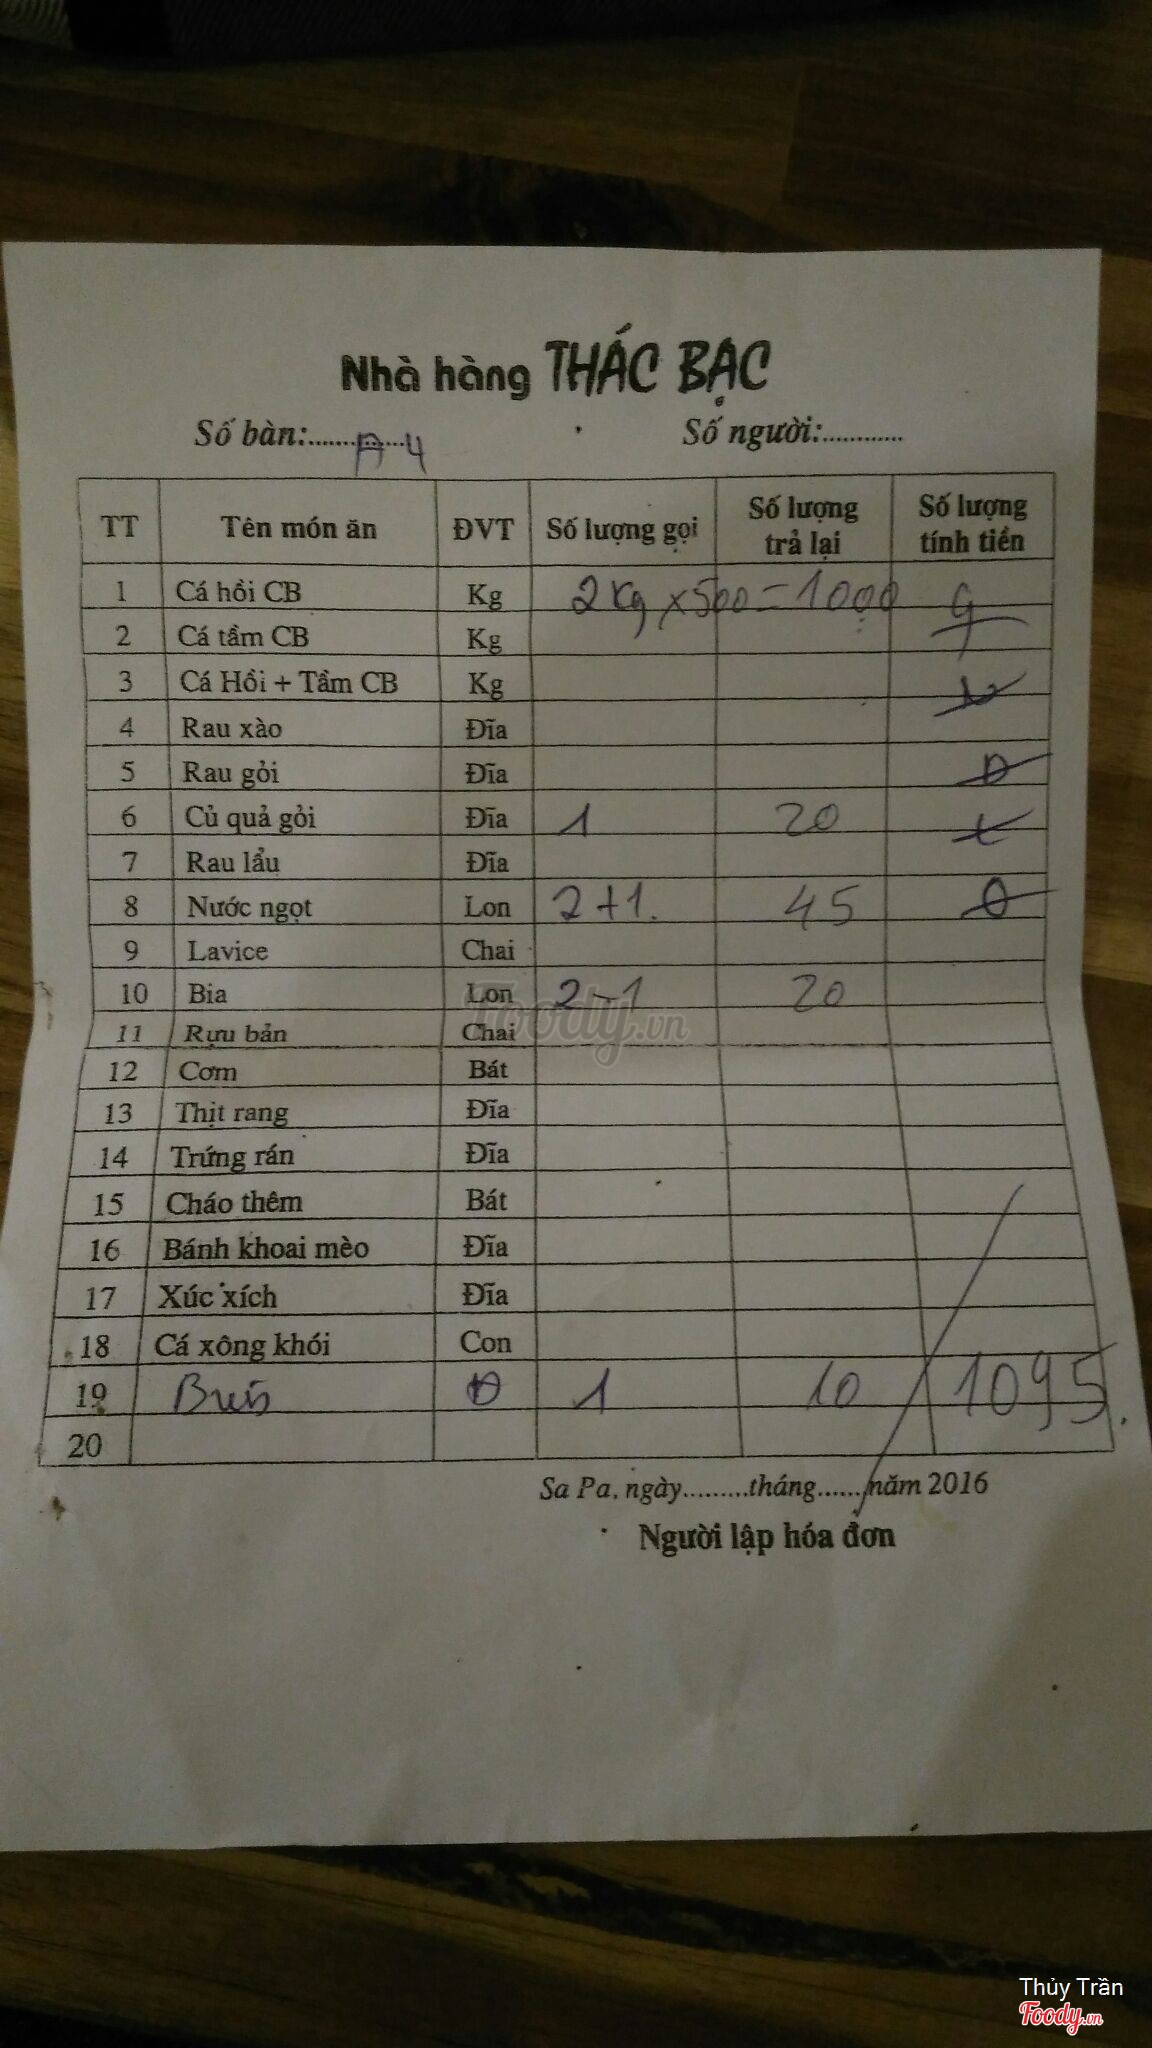 Nhà hàng THÁC BẠC
Số bàn:..........A-4 Số người:............
TT Tên món ăn ĐVT Số lượng gọi Số lượng trả lại Số lượng tính tiền
1 Cá hồi CB Kg 2 Kg x 500 = 1000
2 Cá tầm CB Kg
3 Cá Hồi + Tầm CB Kg
4 Rau xào Đĩa
5 Rau gỏi Đĩa
6 Củ quả gỏi Đĩa 1 20
7 Rau lẩu Đĩa
8 Nước ngọt Lon 2+1. 45
9 Lavice Chai
10 Bia Lon 2-1 20
11 Rựu bản Chai
12 Cơm Bát
13 Thịt rang Đĩa
14 Trứng rán Đĩa
15 Cháo thêm Bát
16 Bánh khoai mèo Đĩa
17 Xúc xích Đĩa
18 Cá xông khói Con
19 Bún Đ 1 10 1095.
20
Sa Pa, ngày.........tháng.......năm 2016
Người lập hóa đơn
Foody.vn
Thủy Trần
Foody.vn